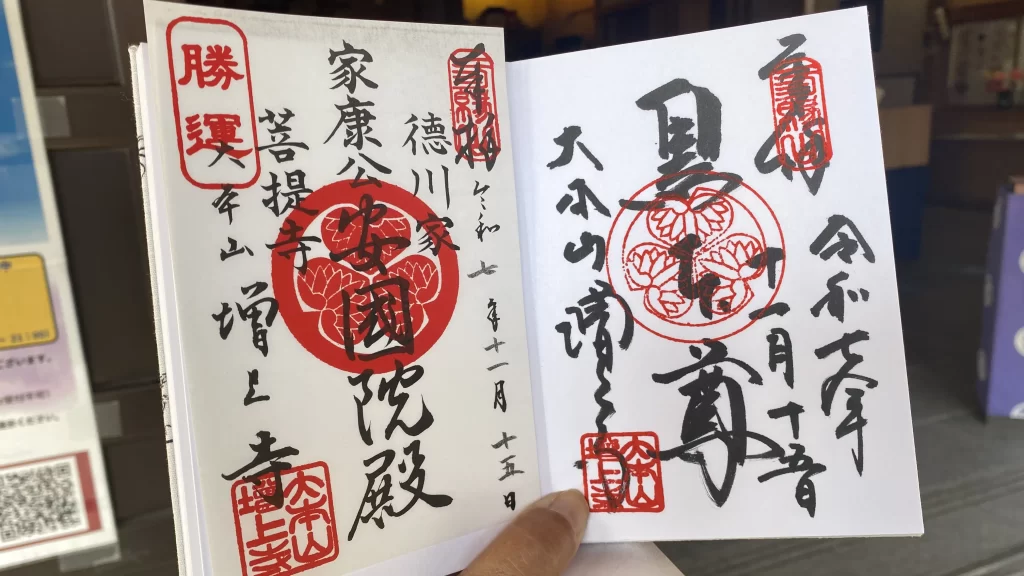 奉拝
令和七年
十一月十五日
黒本尊
大本山増上寺
大本山
増上寺
奉拝
令和七年十一月十五日
徳川家
家康公
安國院殿
菩提寺
大本山増上寺
大本山
増上寺
勝運
ございます。
ください。